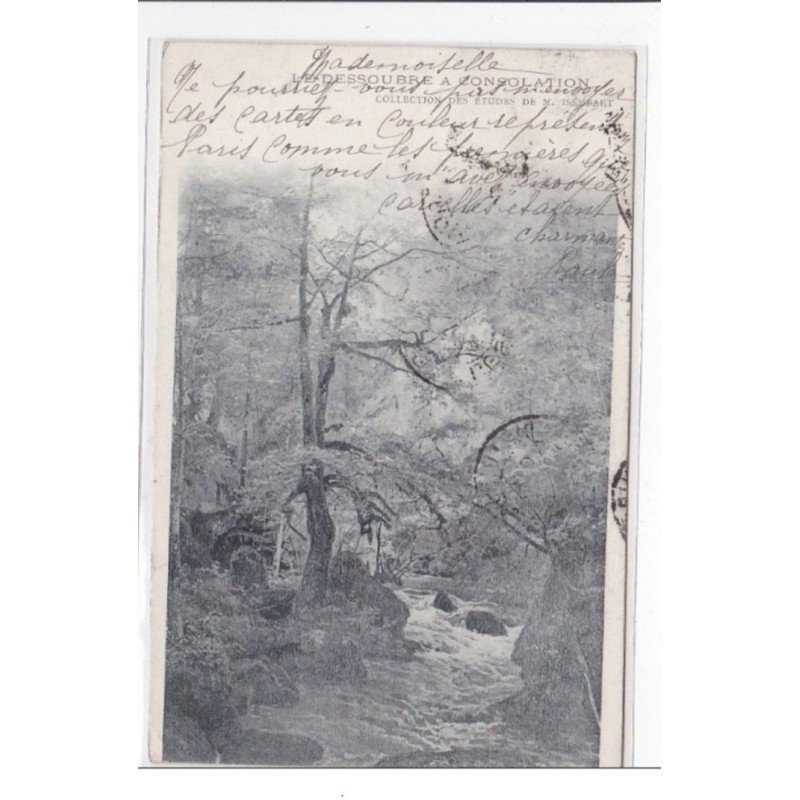 Mademoiselle
LE DESSOUBRE A CONSOLATION
Ne pourriez-vous pas m'envoyer
COLLECTION DES ÉTUDES DE M. ISEMBART
des cartes en couleur représent
Paris comme les premières que
vous m'avez envoyées
car elles étaient
charmant